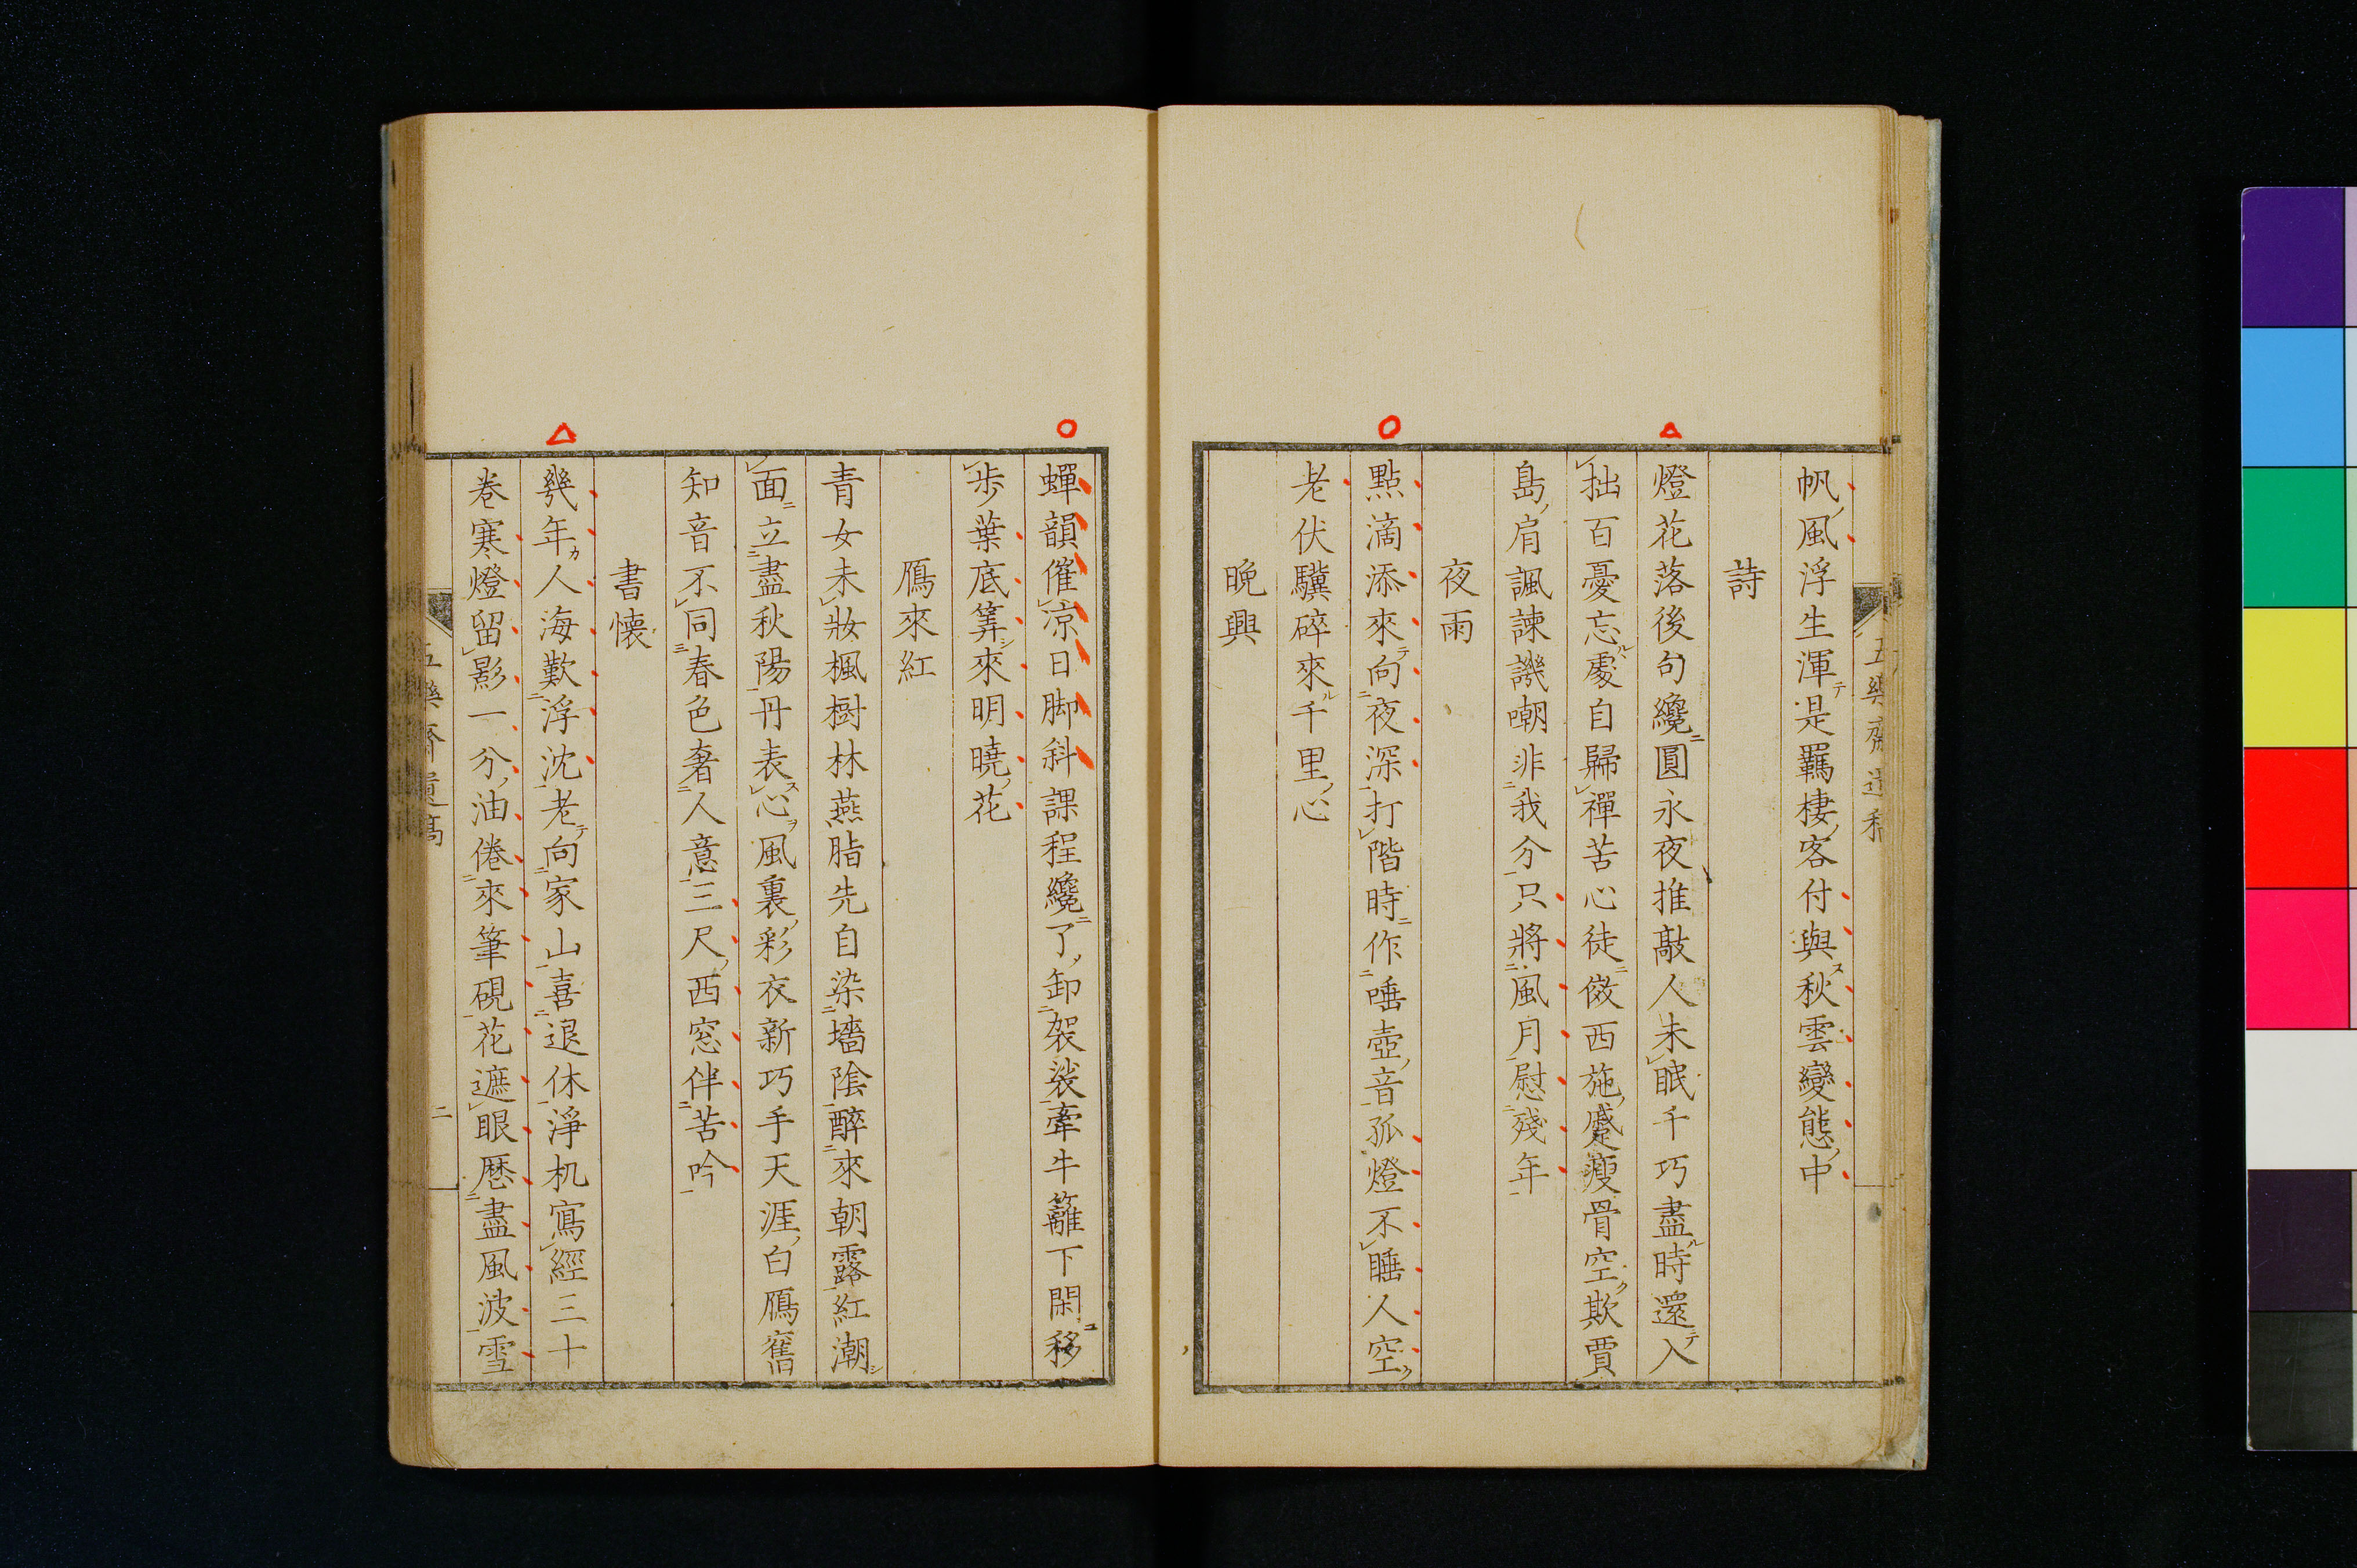 帆風浮生渾是羈棲客付與秋雲變態中
詩
燈花落後句纔圓永夜推敲人未眠千巧盡時還入
拙百憂忘處自歸禪苦心徒傚西施蹙瘦骨空欺賈
島肩諷諫譏嘲非我分只將風月慰殘年
夜雨
點滴添來向夜深打階時作唾壺音孤燈不睡人空
老伏驥碎來千里心
晚興
蟬韻催凉日脚斜課程纔了卸袈裟牽牛籬下閑移
歩葉底筭來明曉花
鴈來紅
青女未妝楓樹林燕脂先自染墻陰醉來朝露紅潮
面立盡秋陽丹表心風裏彩衣新巧手天涯白鴈舊
知音不同春色奢人意三尺西窓伴苦吟
書懐
幾年人海歎浮沈老向家山喜退休淨机寫經三十
卷寒燈留影一分油倦來筆硯花遮眼歴盡風波雪
五樂齋遺稿
二